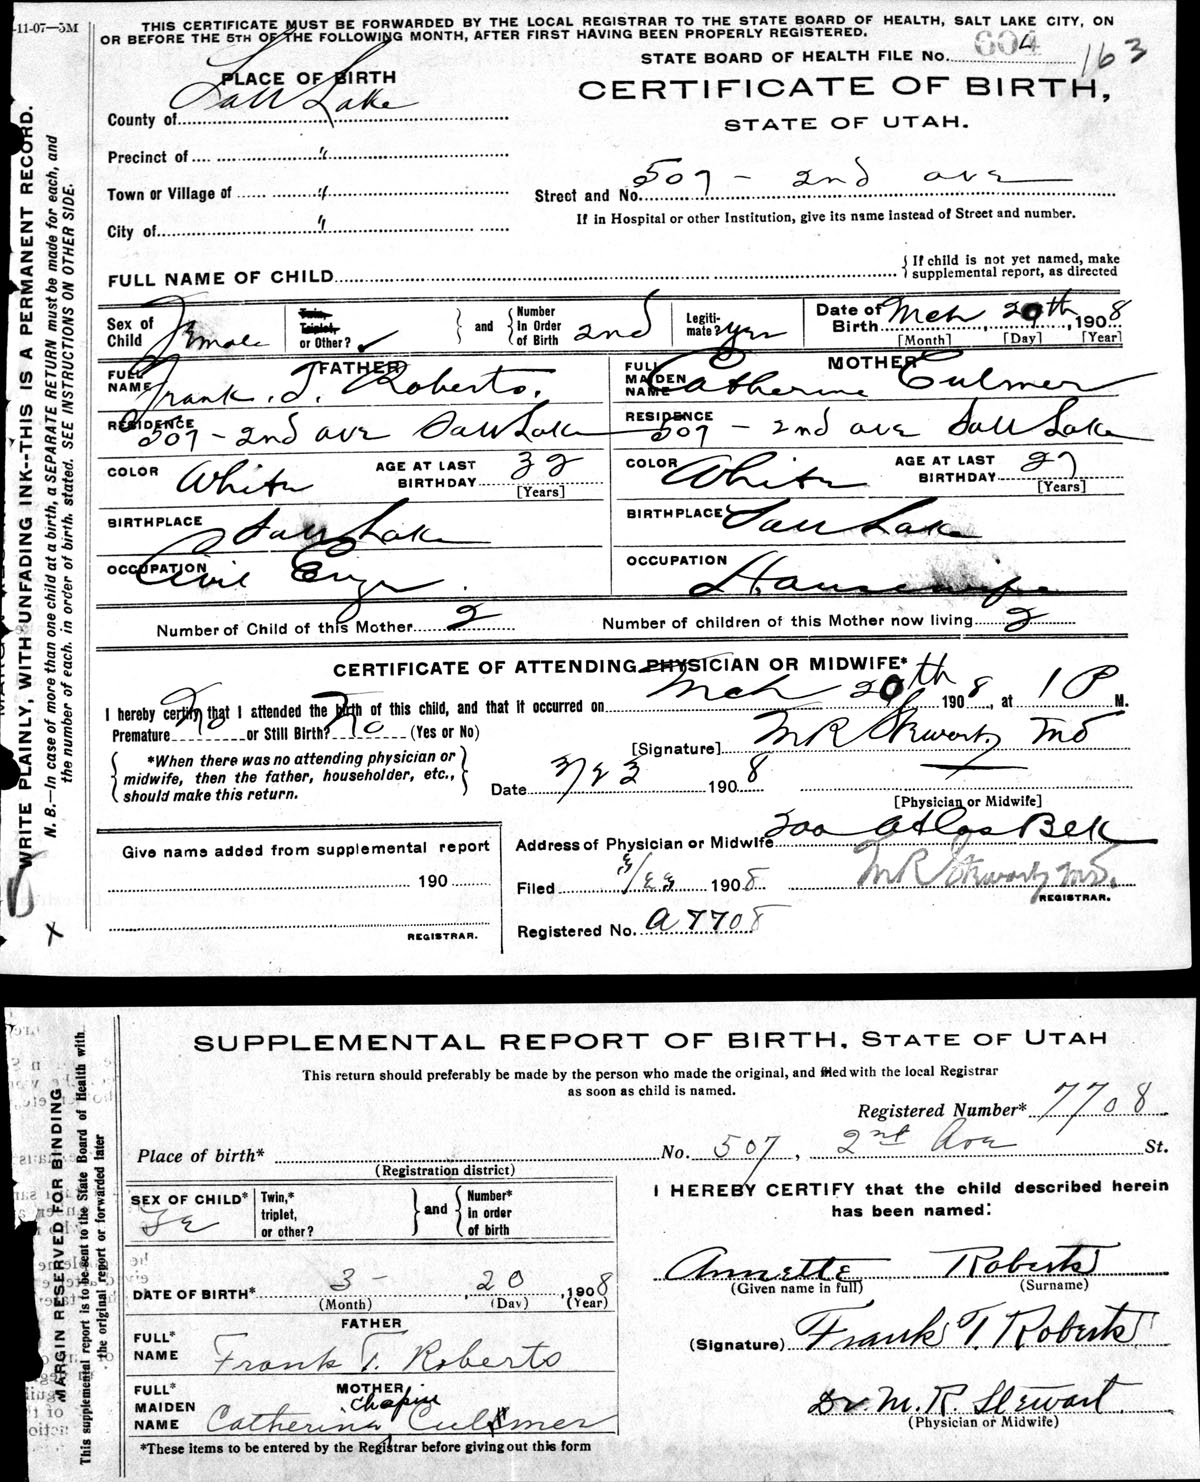 -11-07—5M
THIS CERTIFICATE MUST BE FORWARDED BY THE LOCAL REGISTRAR TO THE STATE BOARD OF HEALTH, SALT LAKE CITY, ON
OR BEFORE THE 5TH OF THE FOLLOWING MONTH, AFTER FIRST HAVING BEEN PROPERLY REGISTERED.
STATE BOARD OF HEALTH FILE NO. 604 163
PLACE OF BIRTH
CERTIFICATE OF BIRTH,
STATE OF UTAH.
County of Salt Lake
Precinct of "
Town or Village of "
Street and No. 507 - 2nd ave
City of "
If in Hospital or other Institution, give its name instead of Street and number.
FULL NAME OF CHILD
If child is not yet named, make
supplemental report, as directed
Sex of Child Female
Twin, Triplet, or Other? ✓
and
Number In Order of Birth 2nd
Legiti- mate? yes
Date of Birth Mch 20th, 1908
[Month] [Day] [Year]
FATHER
FULL NAME Frank. T. Roberts.
MOTHER
FULL MAIDEN NAME Catherine Culmer
RESIDENCE 507 - 2nd ave Salt Lake
RESIDENCE 507 - 2nd ave Salt Lake
COLOR White
AGE AT LAST BIRTHDAY 32
[Years]
COLOR White
AGE AT LAST BIRTHDAY 27
[Years]
BIRTHPLACE Salt Lake
BIRTHPLACE Salt Lake
OCCUPATION Civil Engr.
OCCUPATION Housewife
Number of Child of this Mother 2
Number of children of this Mother now living 2
CERTIFICATE OF ATTENDING PHYSICIAN OR MIDWIFE*
I hereby certify that I attended the birth of this child, and that it occurred on Mch 20th 1908, at 1 P M.
Premature No or Still Birth? No (Yes or No)
[Signature] M R Stewart MD
*When there was no attending physician or
midwife, then the father, householder, etc.,
should make this return.
Date 3/23 1908
[Physician or Midwife]
Address of Physician or Midwife 200 Atlas Blk
Give name added from supplemental report
190
REGISTRAR.
Filed 3/23 1908
M R Stewart MD.
REGISTRAR.
Registered No. a 7708
WRITE PLAINLY, WITH UNFADING INK--THIS IS A PERMANENT RECORD.
N. B.—In case of more than one child at a birth, a SEPARATE RETURN must be made for each, and
the number of each, in order of birth, stated. SEE INSTRUCTIONS ON OTHER SIDE.
X
SUPPLEMENTAL REPORT OF BIRTH, STATE OF UTAH
This return should preferably be made by the person who made the original, and filed with the local Registrar
as soon as child is named.
Registered Number* 7708
Place of birth* No. 507, 2nd Ave St.
(Registration district)
SEX OF CHILD* Fe
Twin,* triplet, or other?
and
Number* in order of birth
I HEREBY CERTIFY that the child described herein
has been named:
Annette Roberts
(Given name in full) (Surname)
DATE OF BIRTH* 3 - 20, 1908
(Month) (Day) (Year)
FATHER
FULL* NAME Frank T. Roberts
(Signature) Frank T. Roberts
MOTHER
FULL* MAIDEN NAME Catherine Chapin Culmer
Dr M. R. Stewart
(Physician or Midwife)
*These items to be entered by the Registrar before giving out this form
MARGIN RESERVED FOR BINDING
This supplemental report is to be sent to the State Board of Health with
the original report or forwarded later